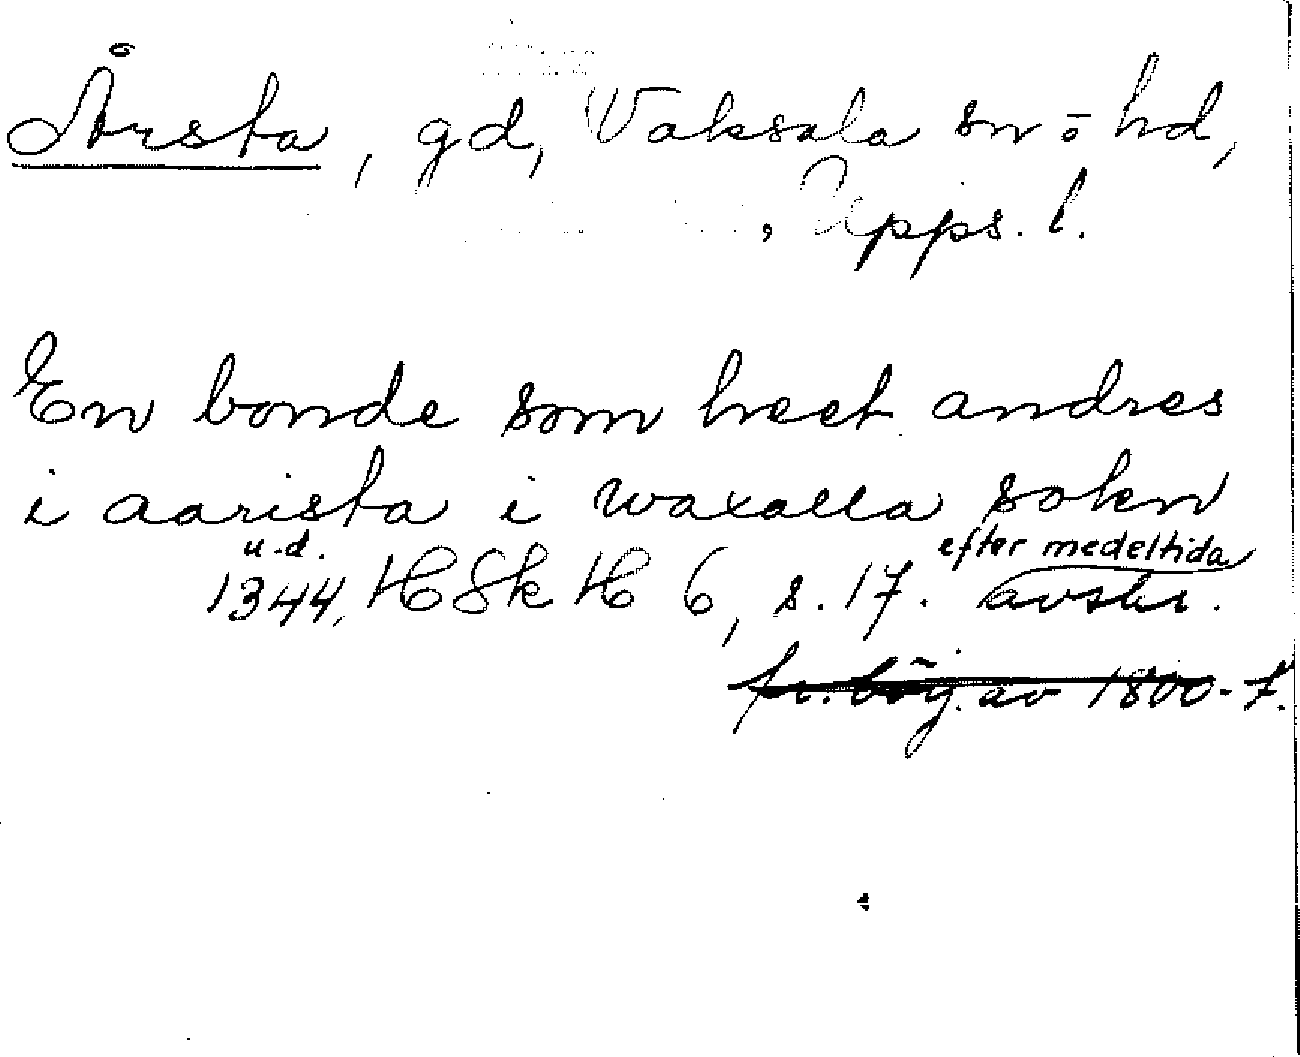 Årsta, gd, Vaksala sn o hd,
, Upps. l.
En bonde som heet andres
i aarista i waxalla sokn
u.d. efter medeltida
1344, HSk H 6, s. 17. avskr.
fr. börj. av 1800-t.